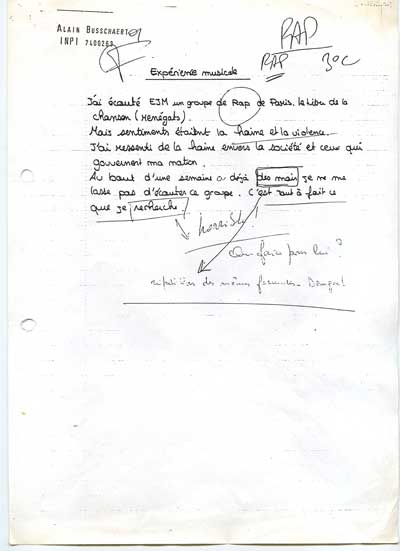 ALAIN BUSSCHAERT
INPI 7400263
RAP
RAP 30C
Expérience musicale
J'ai écouté EJM un groupe de Rap de Paris. le titre de la
chanson (Renégats).
Mais sentiments étaitent la haine et la violence.
J'ai ressenti de la haine envers la société et ceux qui
gouvernent ma nation.
Au bout d'une semaine a déjà des mais je ne me
lasse pas d'écouter ce groupe. C'est tout à fait ce
que je recherche.
horrible!
Que faire pour lui ?
répétition des mêmes formules. Danger!